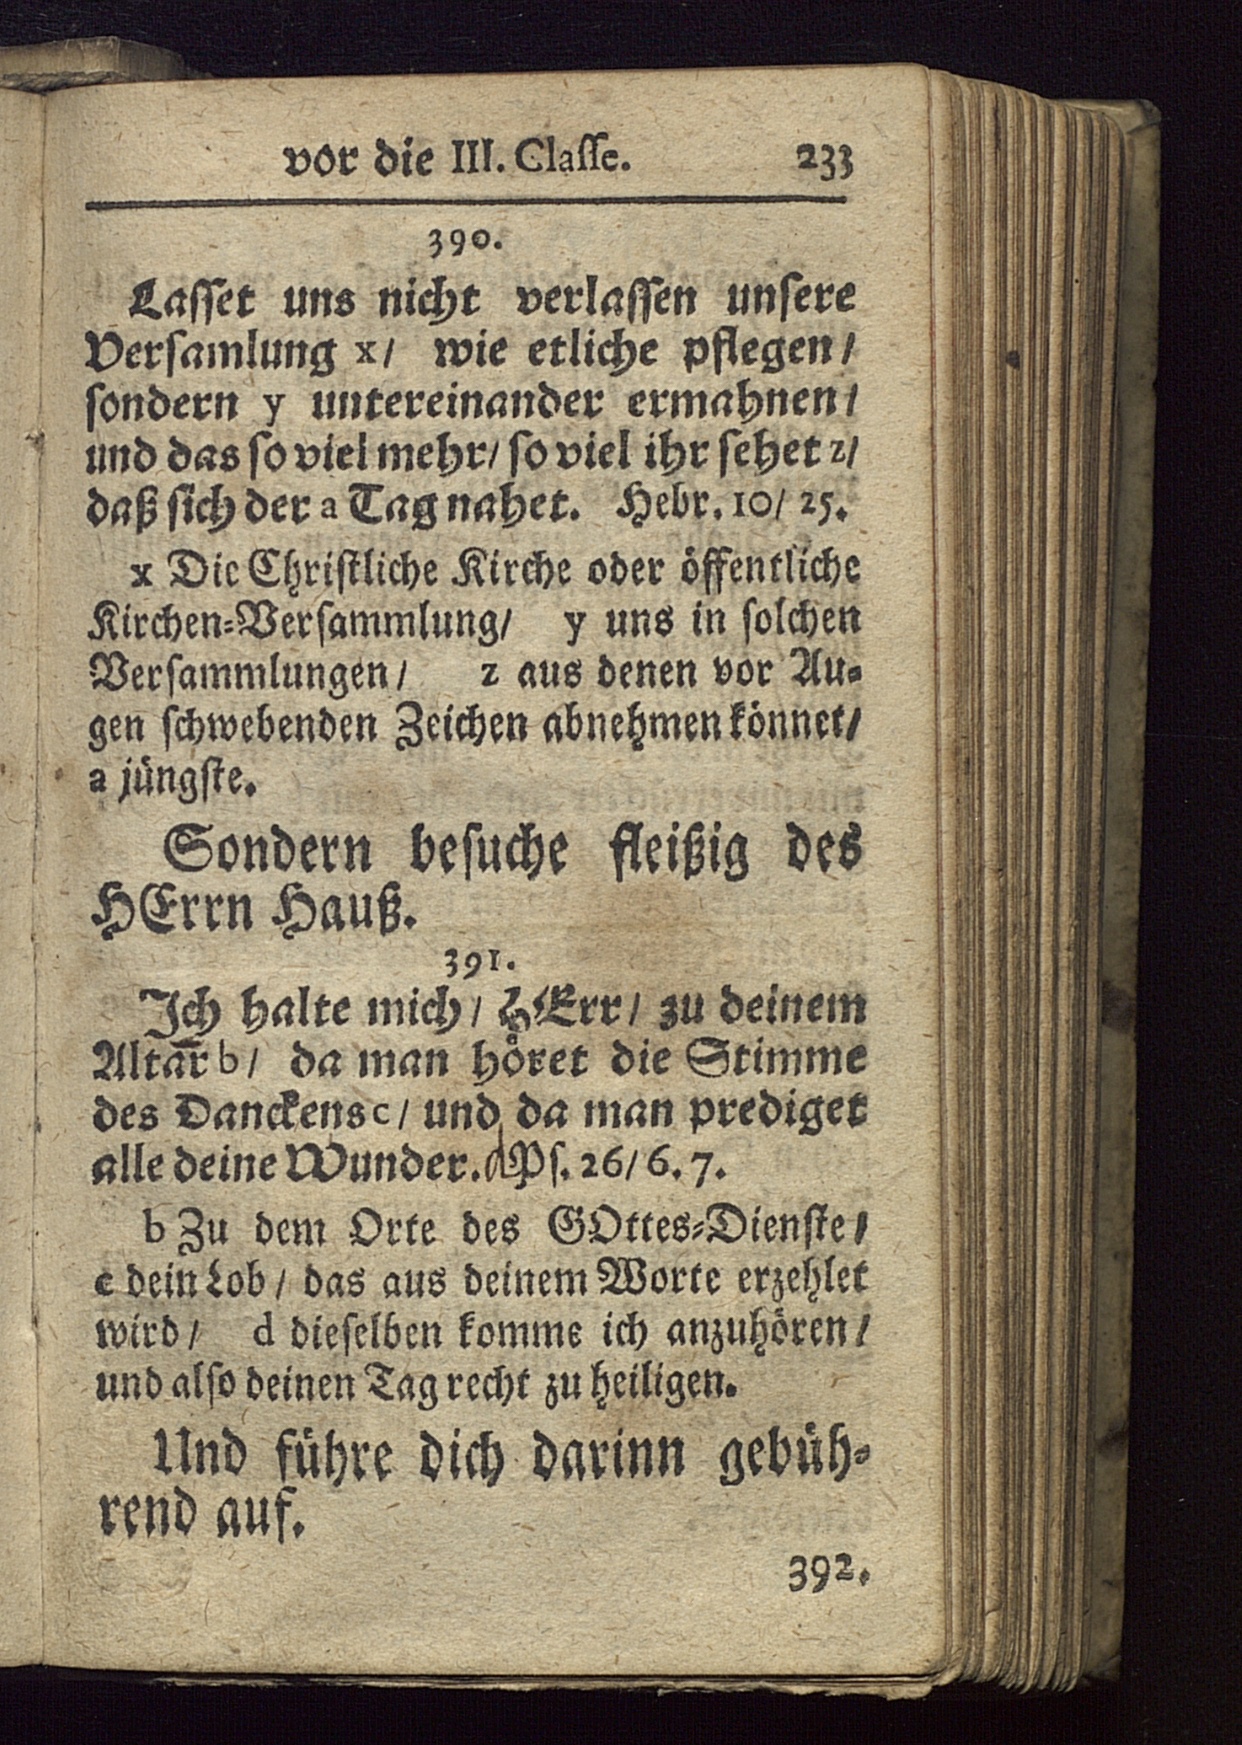 vor die III. Classe. 233
390.
Lasset uns nicht verlassen unsere
Versamlung x/ wie etliche pflegen/
sondern y untereinander ermahnen/
und das so viel mehr/ so viel ihr sehet z/
daß sich der a Tag nahet. Hebr. 10/ 25.
x Die Christliche Kirche oder öffentliche
Kirchen-Versammlung/ y uns in solchen
Versammlungen/ z aus denen vor Au-
gen schwebenden Zeichen abnehmen könnet/
a jüngste.
Sondern besuche fleißig des
HErrn Hauß.
391.
Ich halte mich/ HErr/ zu deinem
Altar̄ b/ da man höret die Stimme
des Danckens c/ und da man prediget
alle deine Wunder. d Ps. 26/ 6. 7.
b Zu dem Orte des GOttes-Dienste/
c dein Lob/ das aus deinem Worte erzehlet
wird/ d dieselben komme ich anzuhören/
und also deinen Tag recht zu heiligen.
Und führe dich darinn gebüh-
rend auf.
392.